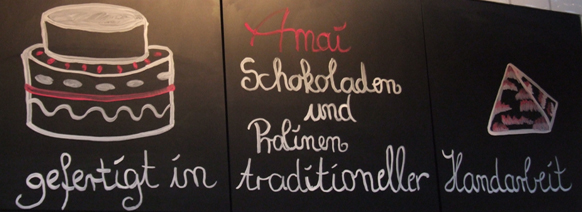 Amai
Schokoladen
und
Pralinen
gefertigt in traditioneller Handarbeit